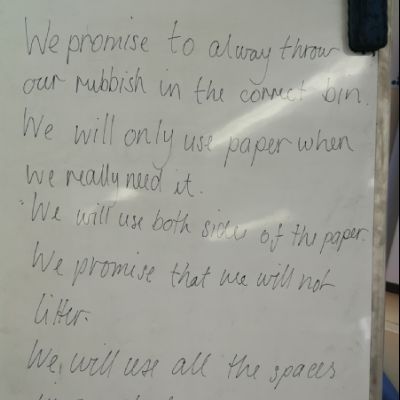 We promise to alway throw
our rubbish in the correct bin.
We will only use paper when
we really need it.
We will use both sides of the paper.
We promise that we will not
litter.
We will use all the spaces